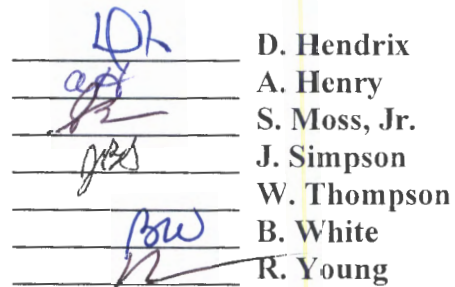 D. Hendrix
A. Henry
S. Moss, Jr.
J. Simpson
W. Thompson
BW B. White
R. Young